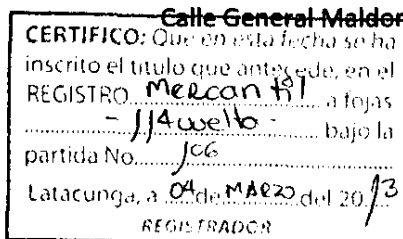 Calle General Maldor
CERTIFICO: Que en esta fecha se ha
inscrito el titulo que antecede, en el
REGISTRO Mercantil a fojas
- 114 vuelto - bajo la
partida No. 106
Latacunga, a 04 de MARZO del 2013
REGISTRADOR